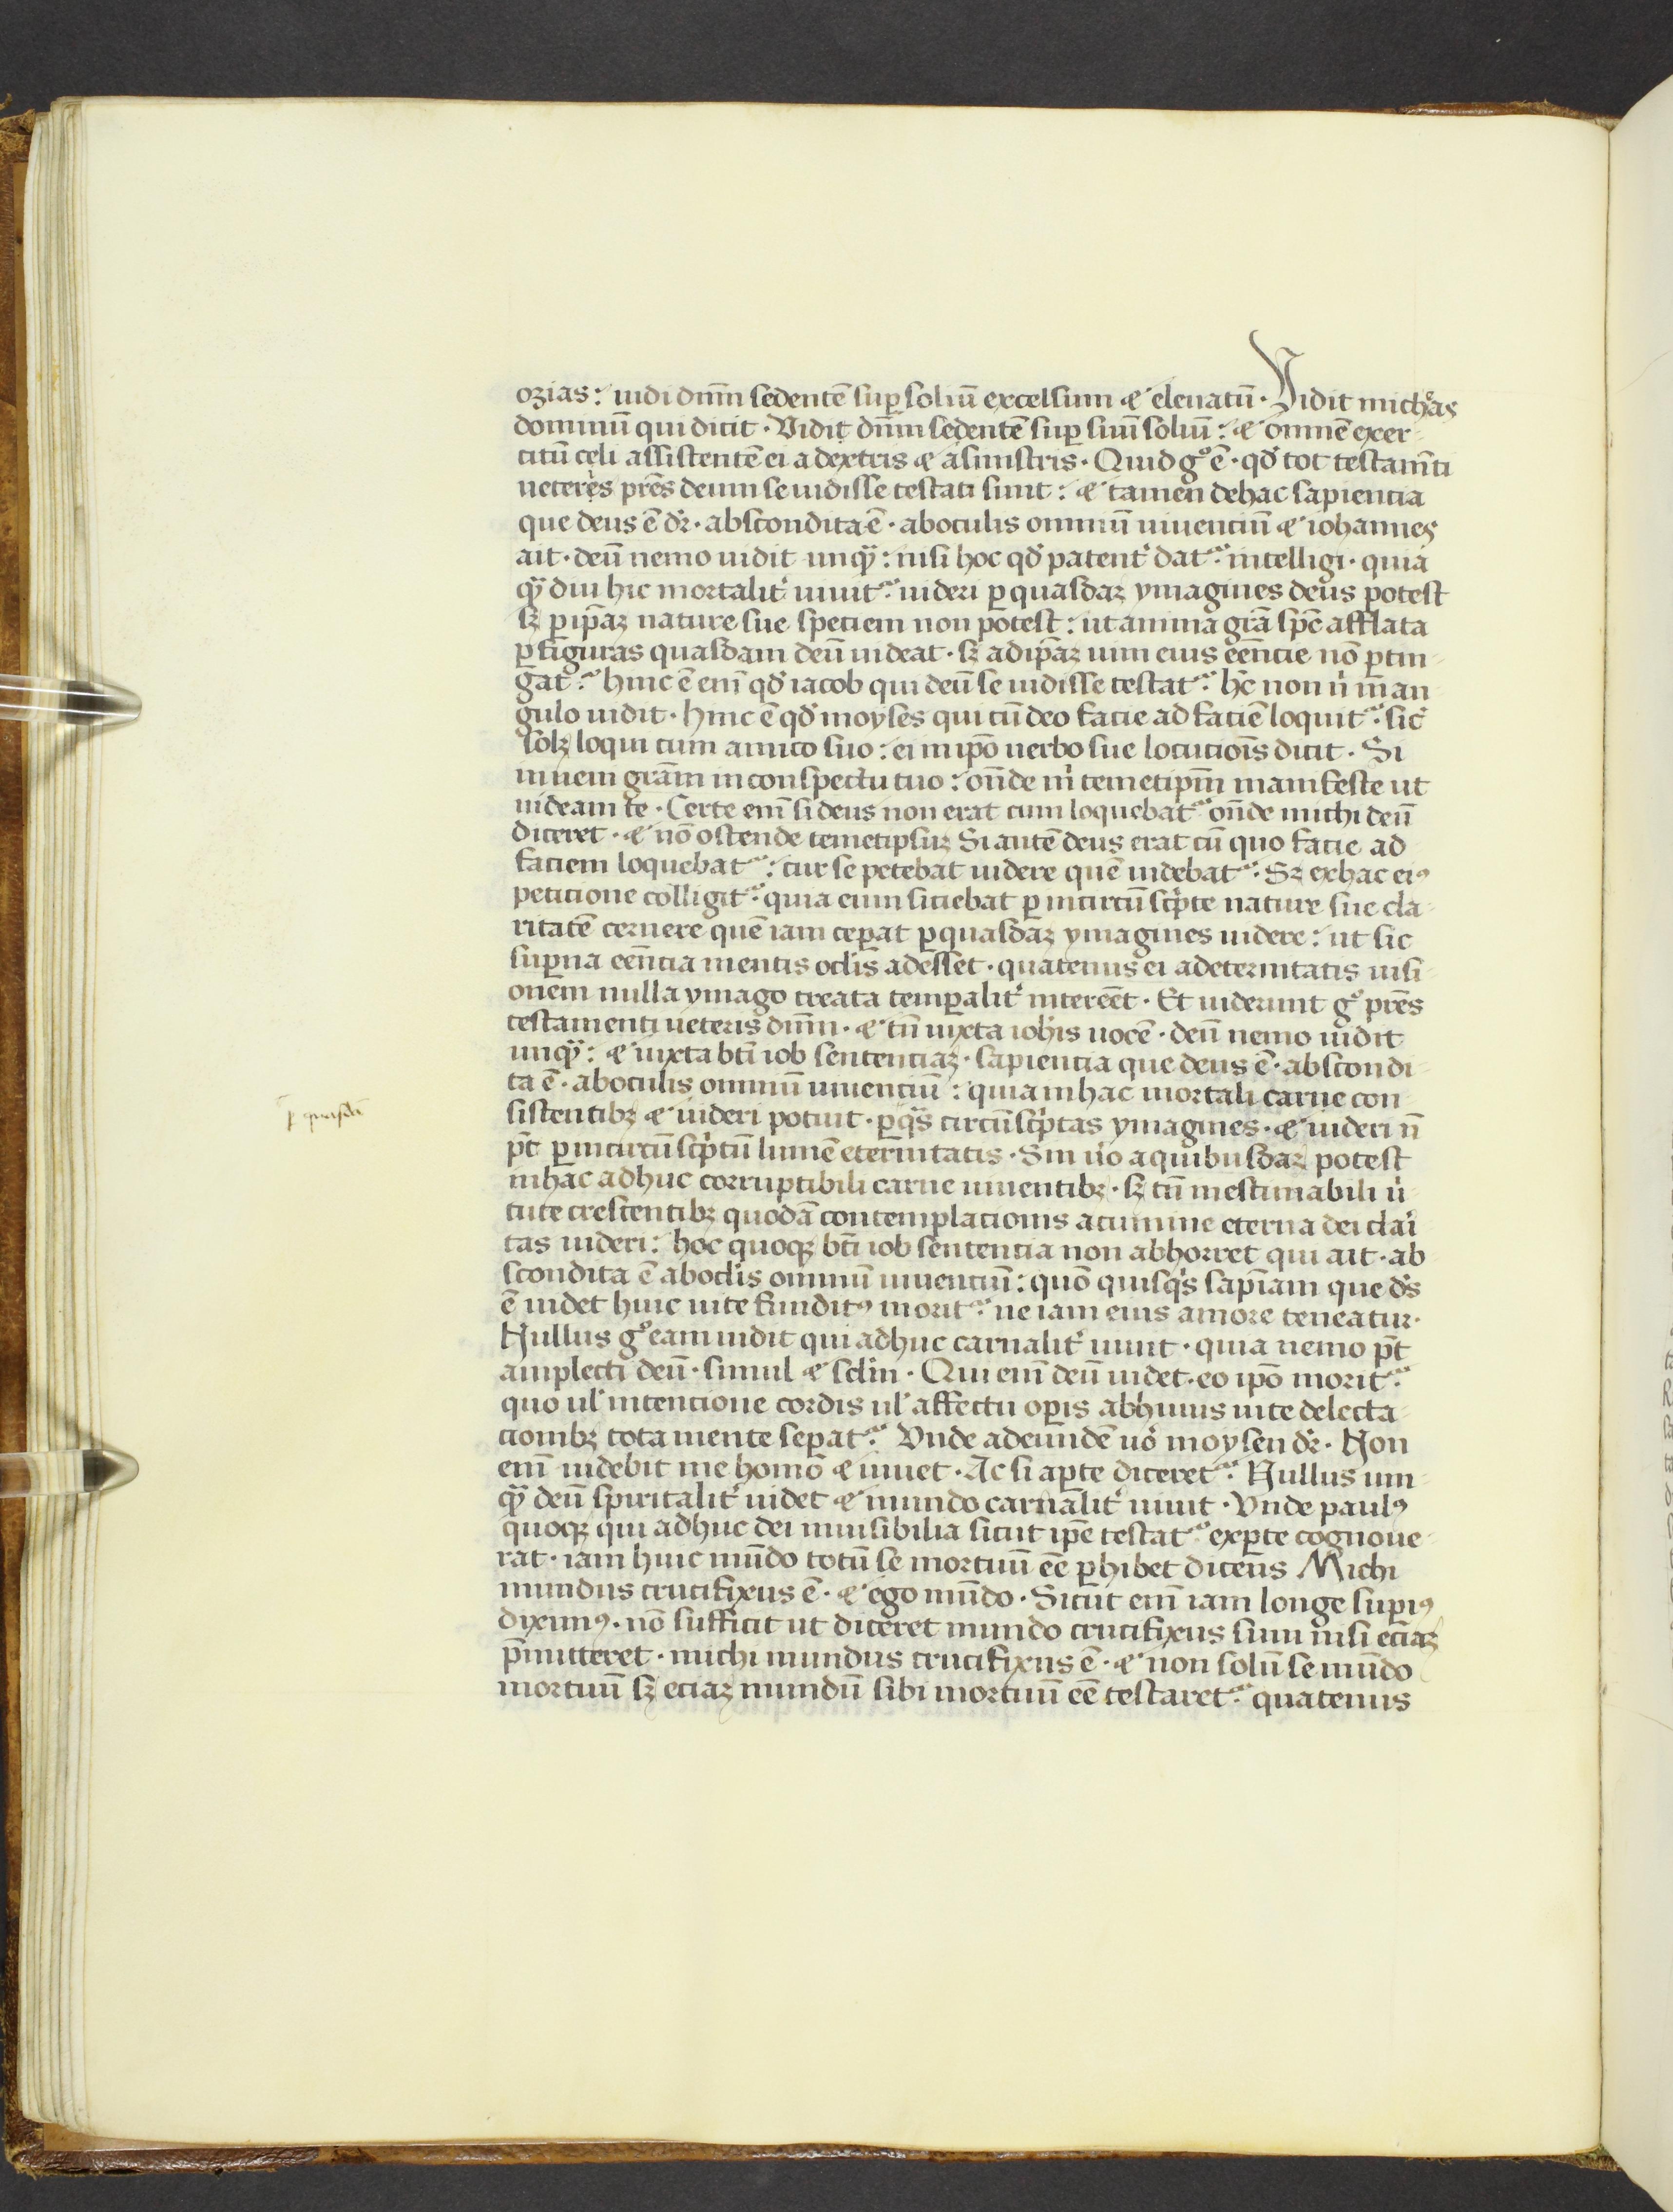 ozias: uidi dn̄m sedentē suꝑ soliū excelsum & eleuatū · Vidit micheas
dominū qui dicit · Vidit dn̄m sedentē suꝑ suū soliū: & omnē exer-
citū celi assistentē ei a dextris & a sinistris · Quid gº ē · qđ tot testam̄ti
ueteres pr̄es deum se uidisse testati sunt: & tamen de hac sapientia
que deus ē dr̄ · abscondita ē · ab oculis omniū uiuenciū & iohannes
ait · deū nemo uidit unqͣ: nisi hoc qđ patent᷑ dat᷑ intelligi · quia
qͣ diu hic mortalit᷑ uiuit᷑ uideri ꝑ quasdaꝫ ymagines deus potest
sꝫ ꝑ ip̄aꝫ nature sue speciem non potest: ut anima gr̄a sp̄c afflata
ꝑ figuras quasdam deū uideat · sꝫ ad ip̄aꝫ uim eius ēencie nō ꝑtin-
gat᷑ hinc ē em̄ qđ iacob qui deū se uidisse testat᷑ hc̄ non n͛ in an-
gulo uidit · hinc ē qđ moyses qui cū deo facie ad faciē loquit᷑ · sic͛
solꝫ loqui cum amico suo: ei in ip̄o uerbo sue locucioīs dicit · Si
inueni gr̄am in conspectu tuo: on̄de m͛ temetip̄m manifeste ut
uideam te · Certe em̄ si deus non erat cum loquebat᷑ on̄de michi deū
diceret · & nō ostende temetipsuꝫ Si autē deus erat cū quo facie ad
faciem loquebat᷑: cur se petebat uidere quē uidebat᷑ Sꝫ ex hac eiꝰ
peticione colligit᷑ quia eum siciebat ꝑ incircūsc͛pte nature sue cla-
ritatē cernere quē iam ceꝑat ꝑ quasdaꝫ ymagines uidere: ut sic
suꝑna ēencia mentis oc̄lis adesset · quatenus ei ad eternitatis uisi-
onem nulla ymago creata temꝑalit᷑ intereēt · Et uiderunt gº pr̄es
testamenti ueteris dn̄m · & tn̄ iuxta ioh̄is uocē · deū nemo uidit
unqͣ: & iuxta bt̄i iob sentenciaꝫ · sapientia que deus ē · abscondi-
ta ē · ab oculis omniū uiuenciū: quia in hac mortali carne con-
sistentibꝫ & uideri potuit · ꝑ qͣs circūsc͛ptas ymagines · & uideri n̄
pt̄ ꝑ incircūsc͛ptū lumē eternitatis · Sin u͛o a quibusdaꝫ potest
in hac adhuc corruptibili carne uiuentibꝫ · sꝫ tn̄ inestimabili u͛-
tute crescentibꝫ quodā contemplacionis acumine eterna dei clai͛-
tas uideri: hoc quoqꝫ bt̄i iob sentencia non abhorret qui ait · ab
scondita ē ab oc̄lis omniū uiuenciū: quō quisqͥs sap̄iam que d͞s
ē uidet huic uite funditꝰ morit᷑ ne iam eius amore teneatur ·
Nullus gº eam uidit qui adhuc carnalit᷑ uiuit · quia nemo pt̄
amplecti deū · simul & sc̄lm · Qui em̄ deū uidet · eo ip̄o morit᷑
quo ul̄ intencione cordis ul̄ affectu oꝑis ab huius uite delecta-
cionibꝫ tota mente seꝑat᷑ Vnde ad eundē uō moysen dr̄ · Non
em̄ uidebit me homo & uiuet · Ac si aꝑte diceret᷑ Nullus un-
qͣ deū spiritalit᷑ uidet & mundo carnalit᷑ uiuit · Vnde paulꝰ
quoqꝫ qui adhuc dei inuisibilia sicut ip̄e testat᷑ exꝑte cognoue-
rat · iam huic mūdo totū se mortuū ēe ꝑhibet dicens Michi
mundus crucifixus ē · & ego mūdo · Sicut em̄ iam longe suꝑiꝰ
diximꝰ · nō sufficit ut diceret mundo crucifixus sum nisi eciaꝫ
p̄mitteret · michi mundus crucifixus ē · & non solū se mūdo
mortuū sꝫ eciaꝫ mundū sibi mortuū ēe testaret᷑ quatenus